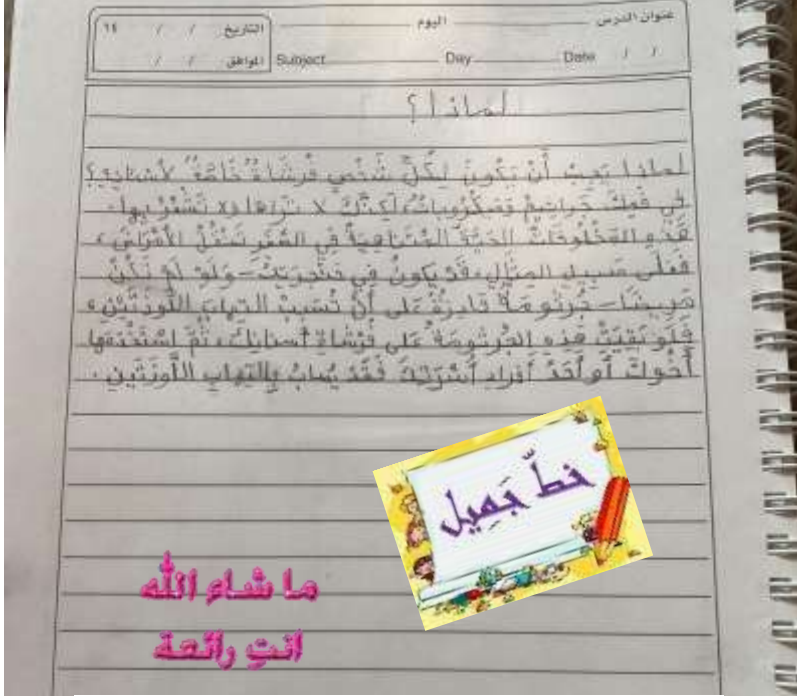 عنوان الدرس اليوم التاريخ / / ١٤
Subject Day Date / / الموافق / /
لماذا؟
لماذا يَجِبُ أَنْ يَكُونَ لِكُلِّ شَخْصٍ فُرْشَاةٌ خَاصَّةٌ لأَسْنَانِهِ؟
في فَمِكَ جَرَاثِيمُ وَمِكْرُوبَاتٌ، لَكِنَّكَ لا تَرَاهَا وَلا تَشْعُرُ بِهَا.
هَذِهِ المَخْلُوقَاتُ الحَيَّةُ المُتَنَاهِيَةُ فِي الصِّغَرِ تَنْقُلُ الأَمْرَاضَ،
فَعَلَى سَبِيلِ المِثَالِ، قَدْ يَكُونُ فِي حَنْجَرَتِكَ - وَلَوْ لَمْ تَكُنْ
مَرِيضًا - جُرْثُومَةٌ قَادِرَةٌ عَلَى أَنْ تُسَبِّبَ التِهَابَ اللَّوْزَتَيْنِ،
فَلَوْ بَقِيَتْ هَذِهِ الجُرْثُومَةُ عَلَى فُرْشَاةِ أَسْنَانِكَ، ثُمَّ اسْتَخْدَمَهَا
أَخُوكَ أَو أَحَدُ أَفْرَادِ أُسْرَتِكَ فَقَدْ يُصَابُ بِالتِهَابِ اللَّوزَتَينِ.
خطّ جَمِيل
ما شاء الله
انتِ رائعة